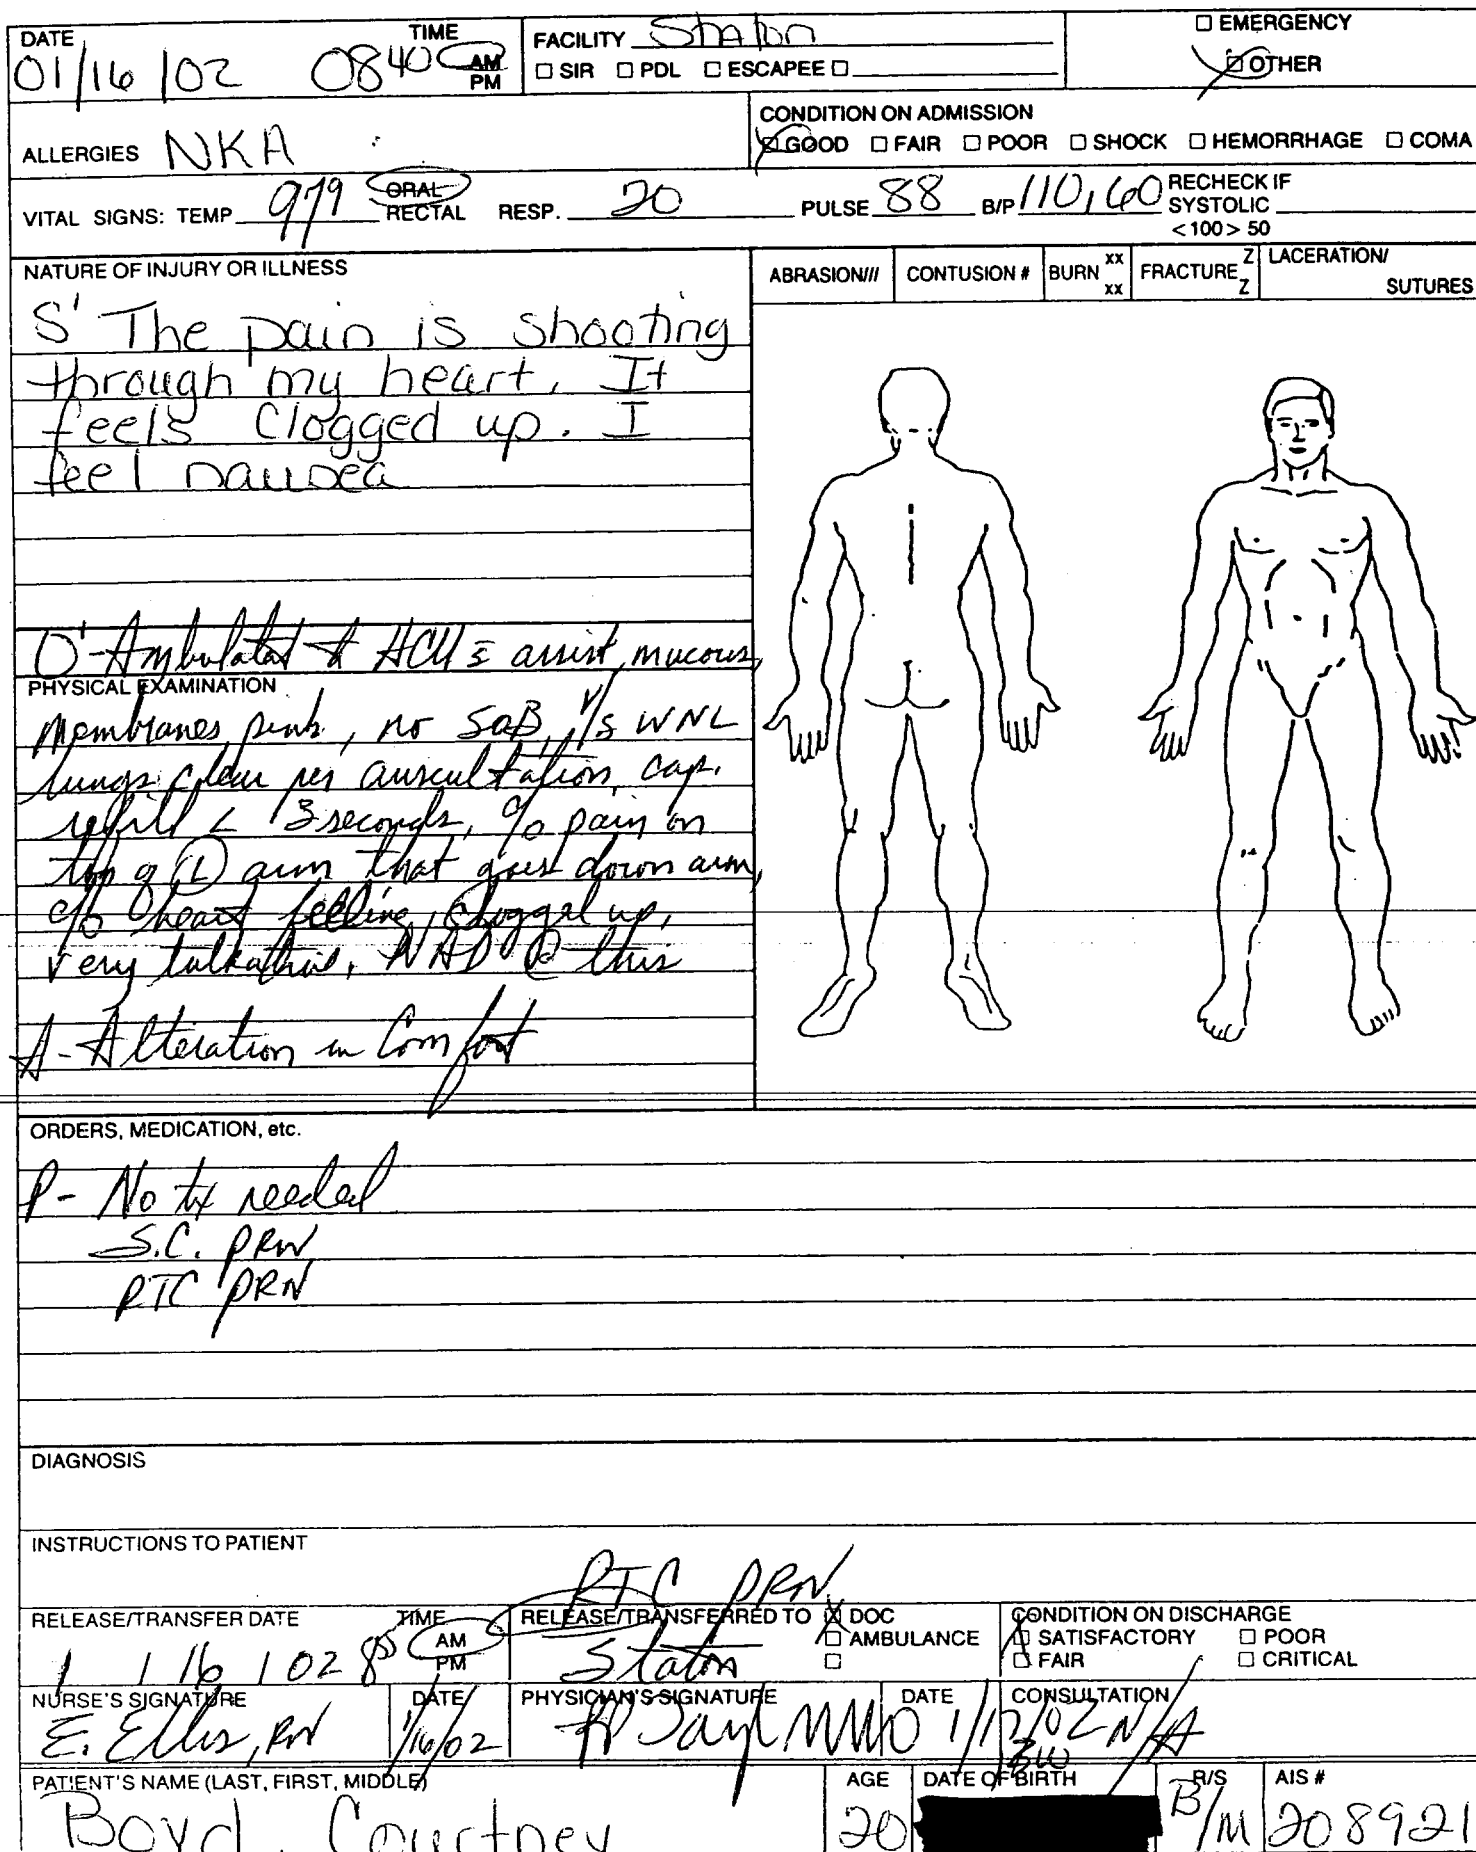 DATE TIME FACILITY Staton ☐ EMERGENCY
01/16/02 0840 AM PM ☐ SIR ☐ PDL ☐ ESCAPEE ☐ ☒ OTHER
ALLERGIES NKA
CONDITION ON ADMISSION
☒ GOOD ☐ FAIR ☐ POOR ☐ SHOCK ☐ HEMORRHAGE ☐ COMA
VITAL SIGNS: TEMP 979 ORAL RECTAL RESP. 20 PULSE 88 B/P 110/60 RECHECK IF SYSTOLIC <100> 50
NATURE OF INJURY OR ILLNESS
ABRASION/// CONTUSION # BURN xx xx FRACTURE Z Z LACERATION/ SUTURES
S' The pain is shooting
through my heart. It
feels clogged up. I
feel nausea
O'-Ambulated to HCU s assist, mucous
PHYSICAL EXAMINATION
Membranes pink, no SOB, V/S WNL
lungs clear per auscultation, cap.
refill < 3 seconds, c/o pain on
top of (L) arm that goes down arm,
c/o heart feeling clogged up,
very talkative, NAD @ this
A-Alteration in Comfort
ORDERS, MEDICATION, etc.
P- No tx needed
S.C. PRN
RTC PRN
DIAGNOSIS
INSTRUCTIONS TO PATIENT
RTC PRN
RELEASE/TRANSFER DATE TIME RELEASE/TRANSFERRED TO ☒ DOC CONDITION ON DISCHARGE
1/16/02 AM PM Staton ☐ AMBULANCE ☐ ☒ SATISFACTORY ☐ POOR
☐ FAIR ☐ CRITICAL
NURSE'S SIGNATURE DATE PHYSICIAN'S SIGNATURE DATE CONSULTATION
E. Ellis, RN 1/16/02 N/A
PATIENT'S NAME (LAST, FIRST, MIDDLE) AGE DATE OF BIRTH R/S AIS #
Boyd, Courtney 20 B/M 208921